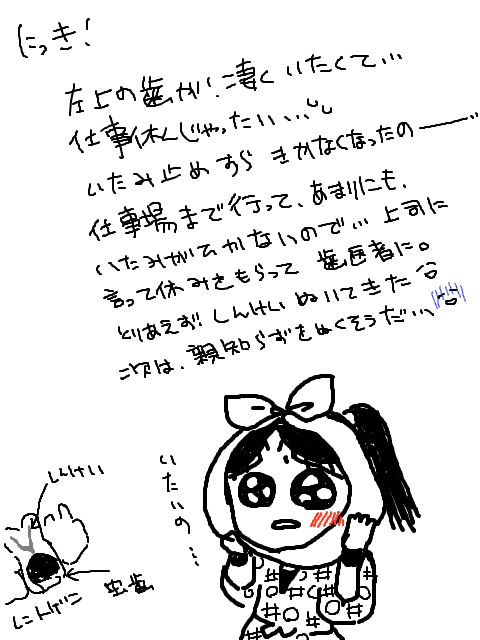 にっき！
左上の歯が！凄くいたくて…
仕事休んじゃったいい…
いたみ止めすらきかなくなったのー
仕事場まで行って、あまりにも、
いたみがひかないので…上司に
言って休みをもらって歯医者に。
とりあえず！しんけいぬいてきた
次は、親知らずをぬくそうだ…
いたいの…
しんけい
虫歯
にんげん